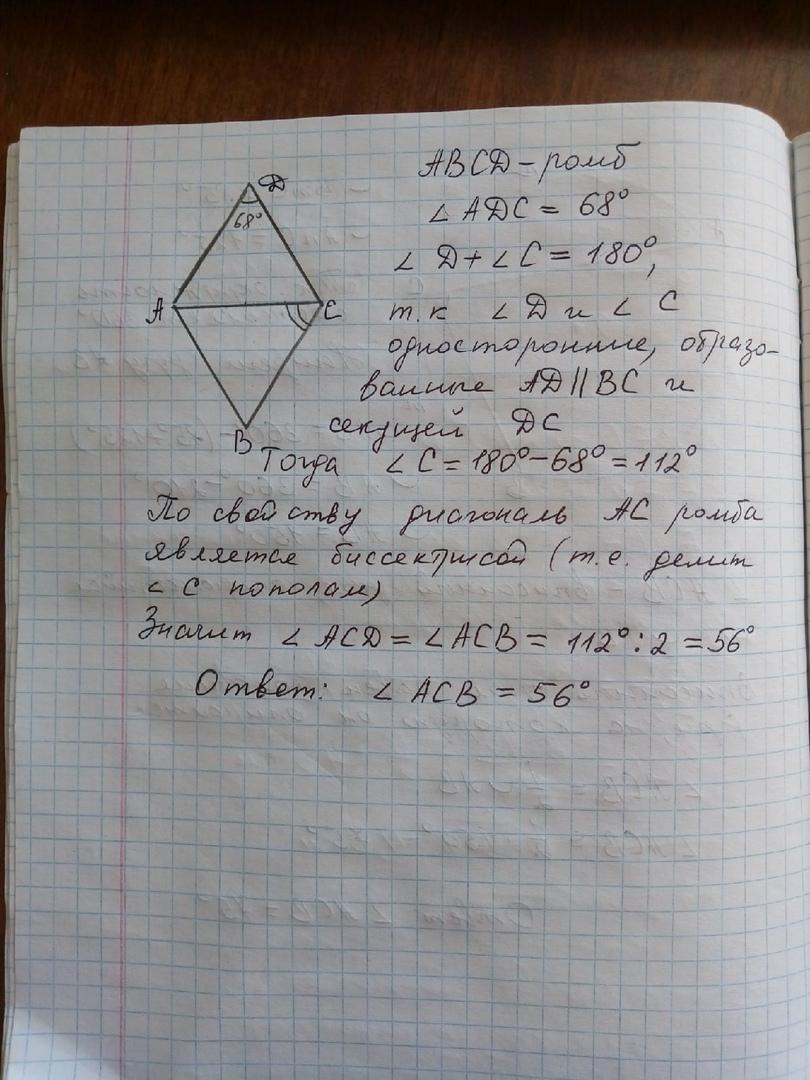 D
68°
A
C
B
ABCD - ромб
∠ ADC = 68°
∠ D + ∠ C = 180°,
т.к ∠ D и ∠ C
односторонние, образо-
ванные AD || BC и
секущей DC
Тогда ∠ C = 180° - 68° = 112°
По свойству диагональ AC ромба
является биссектрисой (т.е. делит
∠ C пополам)
Значит ∠ ACD = ∠ ACB = 112° : 2 = 56°
Ответ: ∠ ACB = 56°